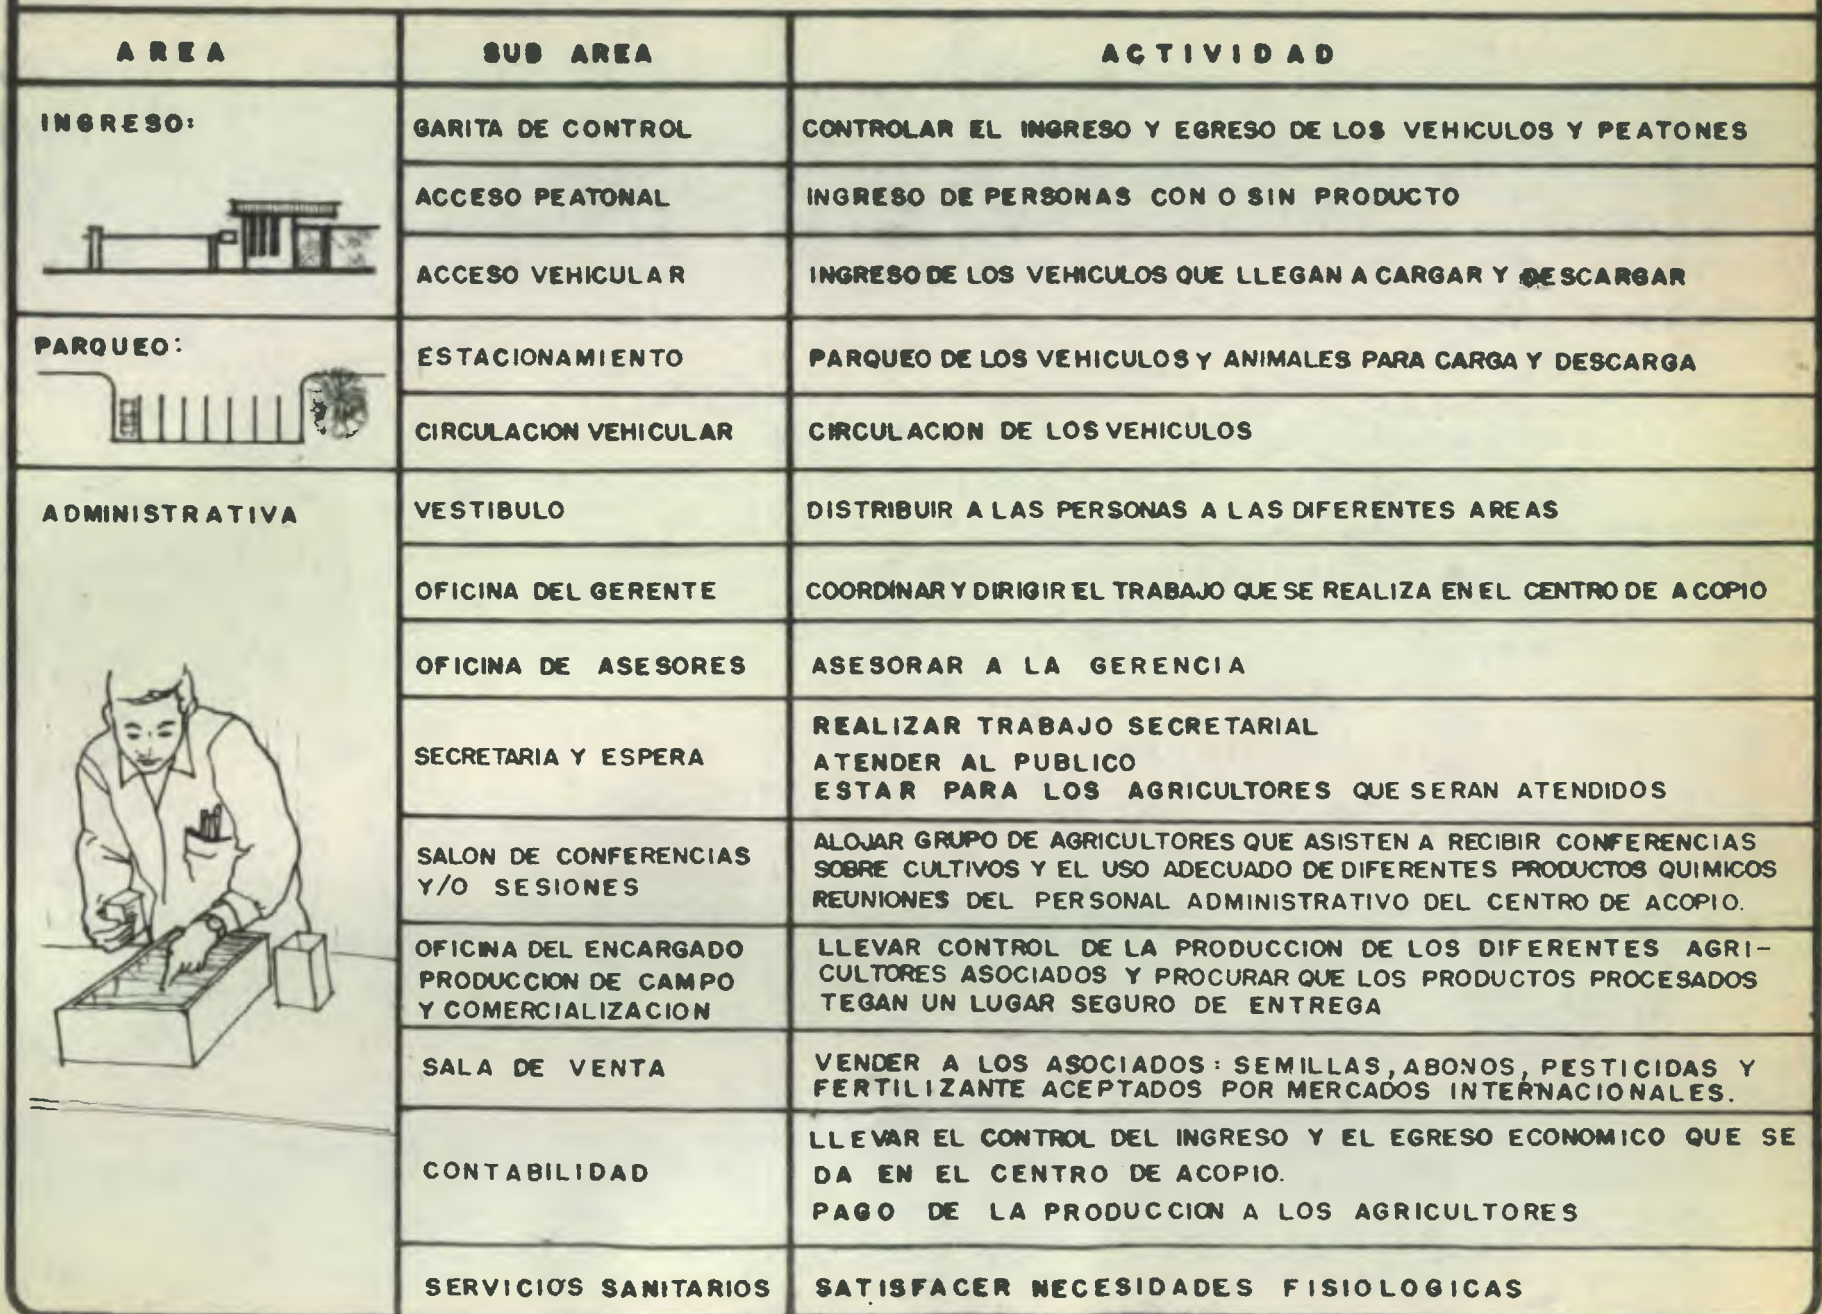 AREA SUB AREA ACTIVIDAD
INGRESO:
GARITA DE CONTROL
CONTROLAR EL INGRESO Y EGRESO DE LOS VEHICULOS Y PEATONES
ACCESO PEATONAL
INGRESO DE PERSONAS CON O SIN PRODUCTO
ACCESO VEHICULAR
INGRESO DE LOS VEHICULOS QUE LLEGAN A CARGAR Y DESCARGAR
PARQUEO:
ESTACIONAMIENTO
PARQUEO DE LOS VEHICULOS Y ANIMALES PARA CARGA Y DESCARGA
CIRCULACION VEHICULAR
CIRCULACION DE LOS VEHICULOS
ADMINISTRATIVA
VESTIBULO
DISTRIBUIR A LAS PERSONAS A LAS DIFERENTES AREAS
OFICINA DEL GERENTE
COORDINAR Y DIRIGIR EL TRABAJO QUE SE REALIZA EN EL CENTRO DE ACOPIO
OFICINA DE ASESORES
ASESORAR A LA GERENCIA
SECRETARIA Y ESPERA
REALIZAR TRABAJO SECRETARIAL
ATENDER AL PUBLICO
ESTAR PARA LOS AGRICULTORES QUE SERAN ATENDIDOS
SALON DE CONFERENCIAS
Y/O SESIONES
ALOJAR GRUPO DE AGRICULTORES QUE ASISTEN A RECIBIR CONFERENCIAS
SOBRE CULTIVOS Y EL USO ADECUADO DE DIFERENTES PRODUCTOS QUIMICOS
REUNIONES DEL PERSONAL ADMINISTRATIVO DEL CENTRO DE ACOPIO.
OFICINA DEL ENCARGADO
PRODUCCION DE CAMPO
Y COMERCIALIZACION
LLEVAR CONTROL DE LA PRODUCCION DE LOS DIFERENTES AGRI-
CULTORES ASOCIADOS Y PROCURAR QUE LOS PRODUCTOS PROCESADOS
TEGAN UN LUGAR SEGURO DE ENTREGA
SALA DE VENTA
VENDER A LOS ASOCIADOS: SEMILLAS, ABONOS, PESTICIDAS Y
FERTILIZANTE ACEPTADOS POR MERCADOS INTERNACIONALES.
CONTABILIDAD
LLEVAR EL CONTROL DEL INGRESO Y EL EGRESO ECONOMICO QUE SE
DA EN EL CENTRO DE ACOPIO.
PAGO DE LA PRODUCCION A LOS AGRICULTORES
SERVICIOS SANITARIOS
SATISFACER NECESIDADES FISIOLOGICAS